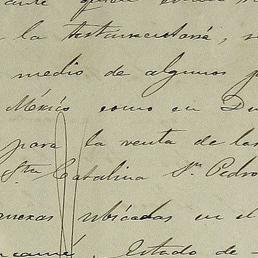 la testamentaría,
medio de algunos
México como en Du
para la venta de las
Sta Catalina Sn Pedro
anexas ubicadas en el
Estado de